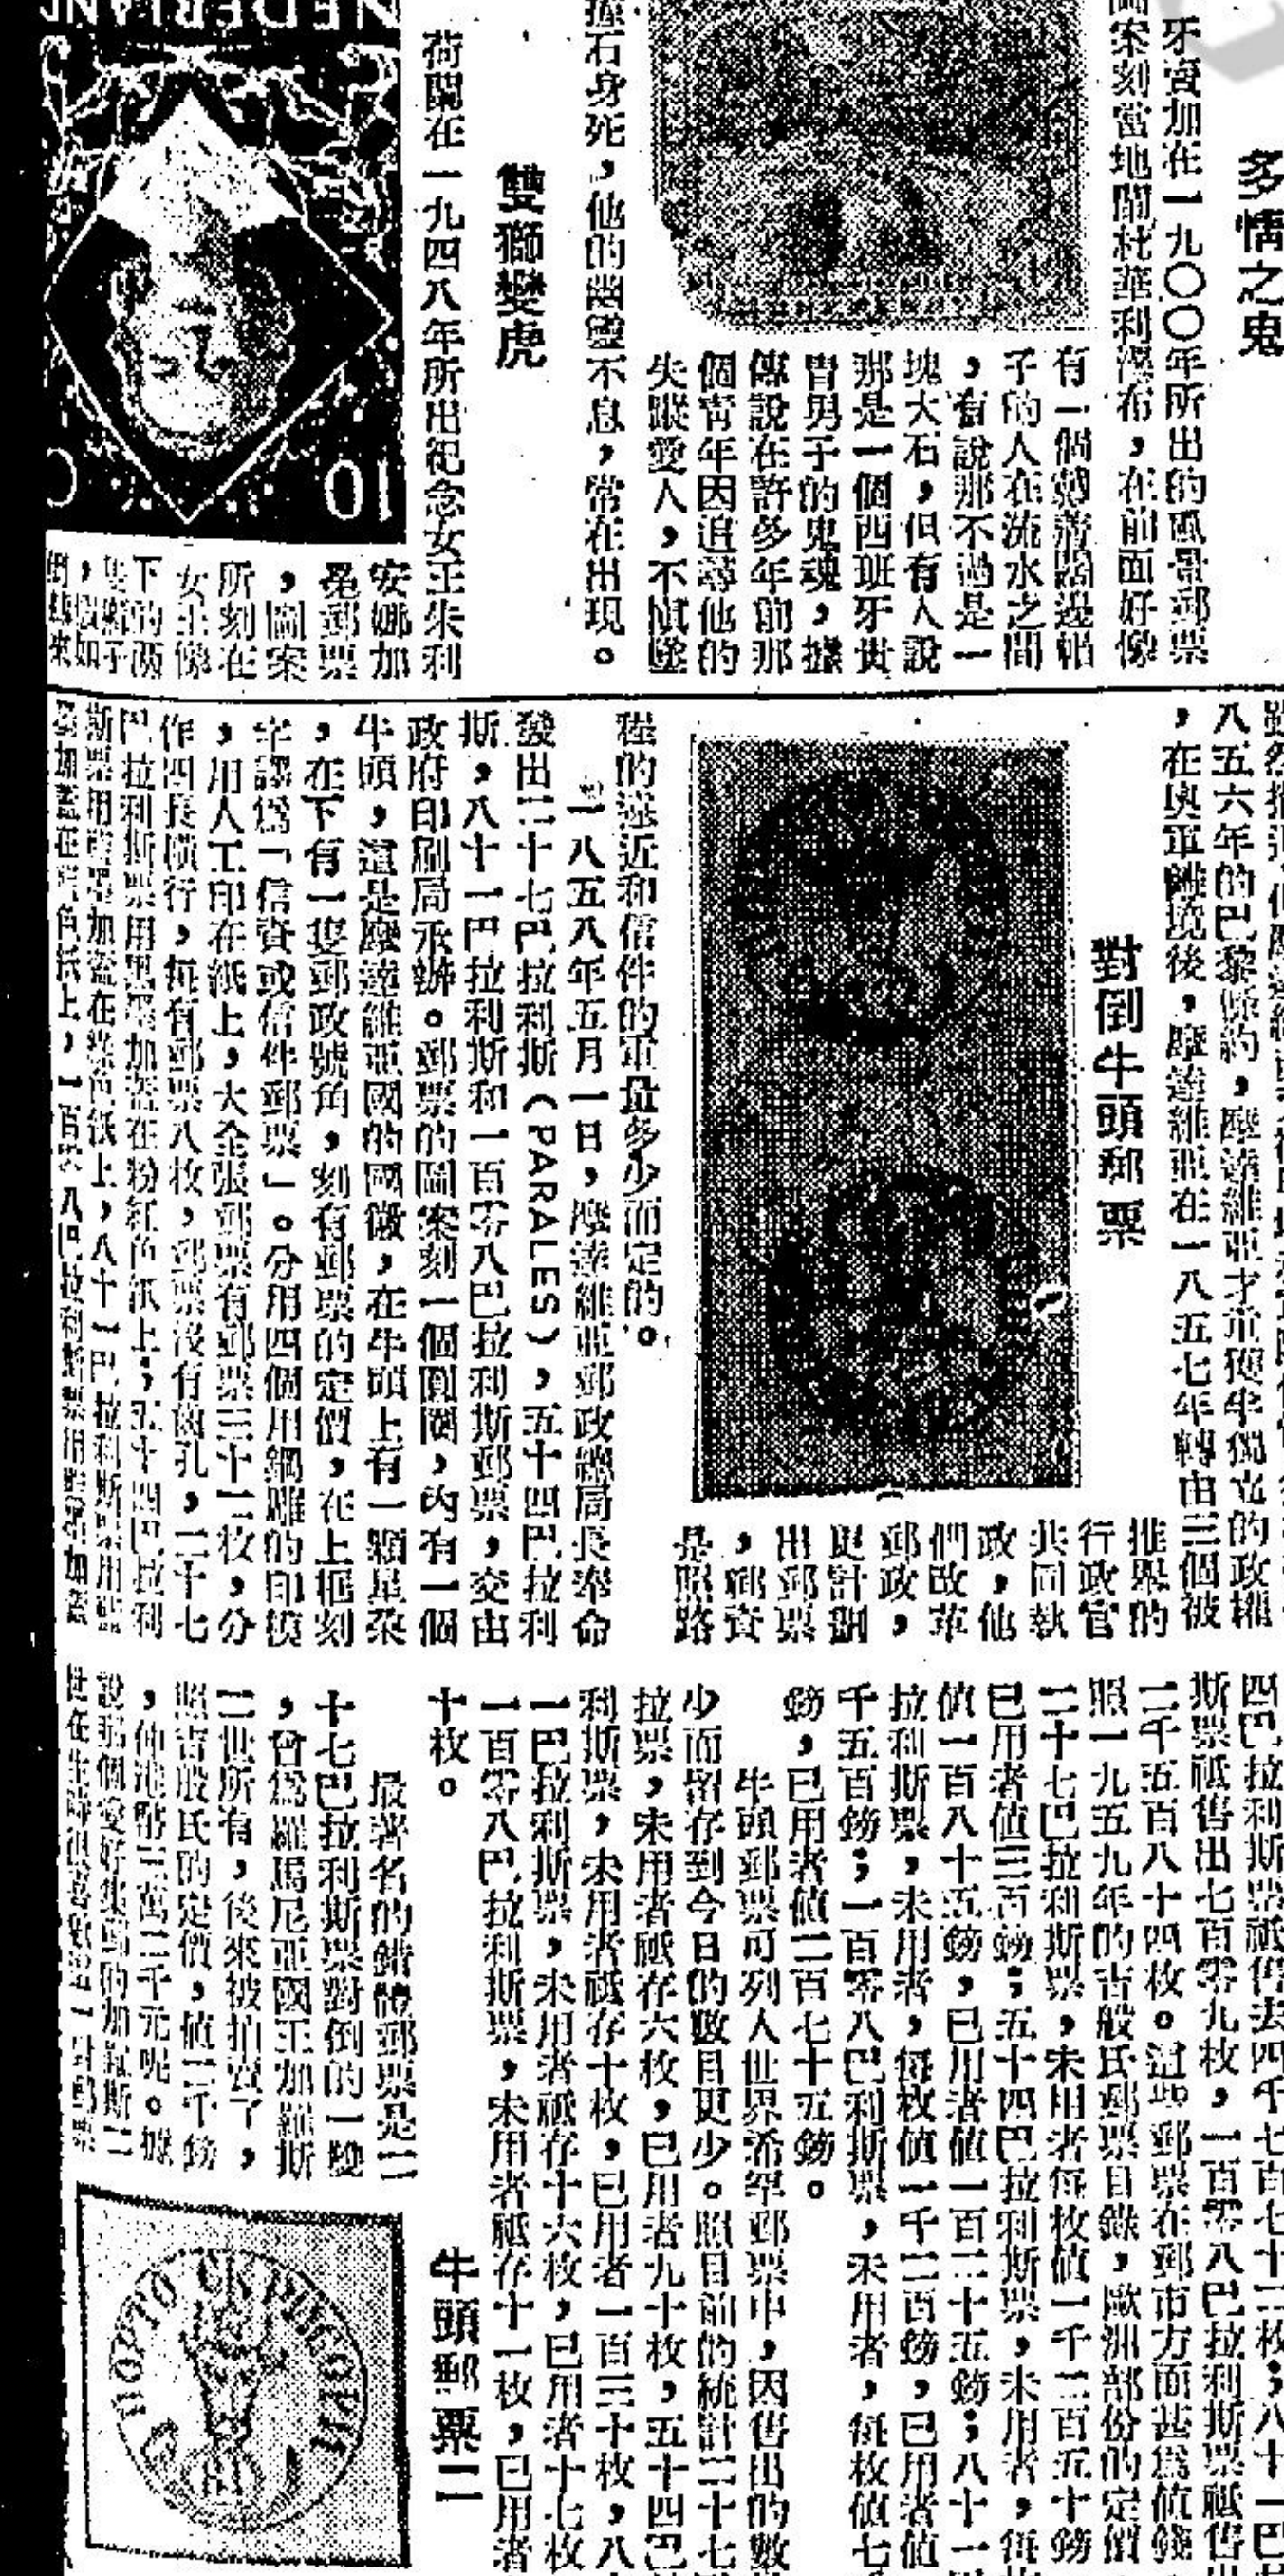 多情之鬼
牙買加在一九〇〇年所出的風景郵票
圖案刻當地聞杜華利瀑布，在前面好像
有一個戴着闊邊帽
子的人在流水之間
，有說那不過是一
塊大石，但有人說
那是一個西班牙貴
胄男子的鬼魂，據
傳說在許多年前那
個青年因追尋他的
失蹤愛人，不愼墜
石身死，他的幽靈不息，常在出現。
雙獅變虎
荷蘭在一九四八年所出紀念女王朱利
安娜加
冕郵票
，圖案
所刻在
女王像
下的兩
獅子
，假如
倒轉來
NEDERLAND
10
八五六年的巴黎條約，摩達維亞才重獲半獨立的政權
，在奧軍離境後，摩達維亞在一八五七年轉由三個被
推舉的
行政官
共同執
政，他
們改革
郵政，
更計劃
出郵票
，郵資
是照路
對倒牛頭郵票
程的遠近和信件的重量多少而定的。
一八五八年五月一日，摩達維亞郵政總局長奉命
發出二十七巴拉利斯（PARALES），五十四巴拉利
斯，八十一巴拉利斯和一百零八巴拉利斯郵票，交由
政府印刷局承辦。郵票的圖案刻一個圓圈，內有一個
牛頭，這是摩達維亞國的國徽，在牛頭上有一顆星朶
，在下有一隻郵政號角，刻有郵票的定價，在上框刻
字譯爲「信資或信件郵票」。分用四個用鋼雕的印模
，用人工印在紙上，大全張郵票有郵票三十二枚，分
作四長橫行，每有郵票八枚，郵票沒有齒孔，二十七
巴拉利斯票用黑墨加蓋在粉紅色紙上；五十四巴拉利
斯票用藍墨加蓋在綠色紙上，八十一巴拉利斯票用藍
墨加蓋在色紙上，一百零八巴拉利斯票用藍墨加蓋
四巴拉利斯票祗售去四千七百七十二枚；八十一巴
斯票祗售出七百零九枚，一百零八巴拉利斯票祗售出
二千五百八十四枚。這些郵票在郵市方面甚爲值錢
照一九五九年的吉般氏郵票目錄，歐洲部份的定價
二十七巴拉利斯票，未用者每枚值一千二百五十鎊
已用者值三百鎊；五十四巴拉利斯票，未用者，每枚
值一百八十五鎊，已用者值一百二十五鎊；八十一
拉利斯票，未用者，每枚值一千二百鎊，已用者值
千五百鎊；一百零八巴利斯票，未用者，每枚值七
鎊，已用者值二百七十五鎊。
牛頭郵票可列入世界希罕郵票中，因售出的數
少而留存到今日的數目更少。照目前的統計二十七
拉票，未用者祗存六枚，已用者九十枚，五十四巴
利斯票，未用者祗存十枚，已用者一百三十枚，八
一巴拉利斯票，未用者祗存十六枚，已用者十七枚
一百零八巴拉利斯票，未用者祗存十一枚，已用者
十枚。
牛頭郵票二
最著名的錯體郵票是二
十七巴拉利斯票對倒的一變
，曾爲羅馬尼亞國王加羅斯
二世所有，後來被拍賣了，
照吉般氏的定價，值二千鎊
，伸港幣三萬二千元呢。據
說那個愛好集郵的加羅斯二
世在生時很喜歡把一對郵票